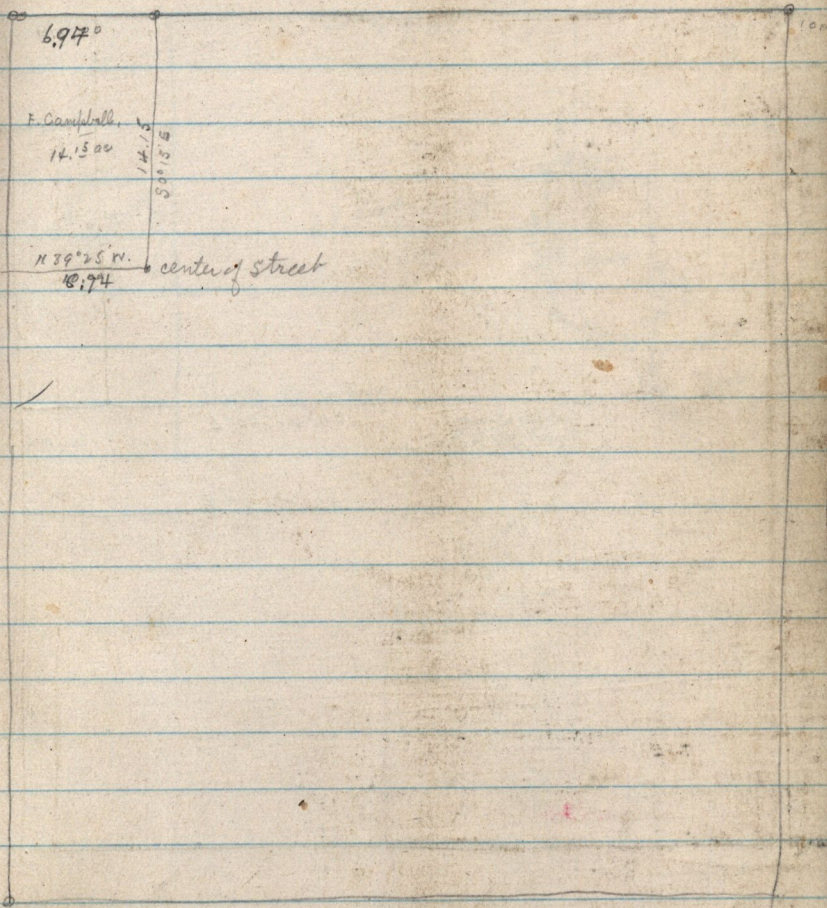 6.94°
F. Campbell.
14.15 ac
14.15
S 0° 15' E
N 89° 25' W.
center of Street